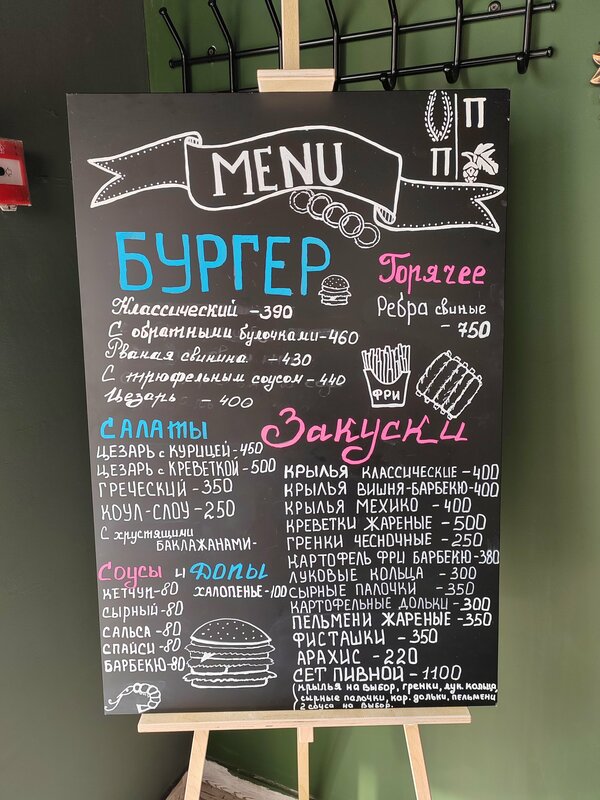 П
П
MENU
БУРГЕР
Классический - 390
С обратными булочками - 460
Рваная свинина - 430
С трюфельным соусом - 440
Цезарь - 400
Горячее
Ребра свиные
- 750
ФРИ
САЛАТЫ
ЦЕЗАРЬ с КУРИЦЕЙ - 450
ЦЕЗАРЬ с КРЕВЕТКОЙ - 500
ГРЕЧЕСКИЙ - 350
КОУЛ-СЛОУ - 250
С хрустящими
БАКЛАЖАНАМИ -
Соусы и ДОПЫ
КЕТЧУП - 80 ХАЛОПЕНЬЕ - 100
СЫРНЫЙ - 80
САЛЬСА - 80
СПАЙСИ - 80
БАРБЕКЮ - 80
Закуски
КРЫЛЬЯ КЛАССИЧЕСКИЕ - 400
КРЫЛЬЯ ВИШНЯ-БАРБЕКЮ - 400
КРЫЛЬЯ МЕХИКО - 400
КРЕВЕТКИ ЖАРЕНЫЕ - 500
ГРЕНКИ ЧЕСНОЧНЫЕ - 250
КАРТОФЕЛЬ ФРИ БАРБЕКЮ - 380
ЛУКОВЫЕ КОЛЬЦА - 300
СЫРНЫЕ ПАЛОЧКИ - 350
КАРТОФЕЛЬНЫЕ ДОЛЬКИ - 300
ПЕЛЬМЕНИ ЖАРЕНЫЕ - 350
ФИСТАШКИ - 350
АРАХИС - 220
СЕТ ПИВНОЙ - 1100
(крылья на выбор, гренки, лук. кольца,
сырные палочки, кар. дольки, пельмени
2 соуса на выбор.